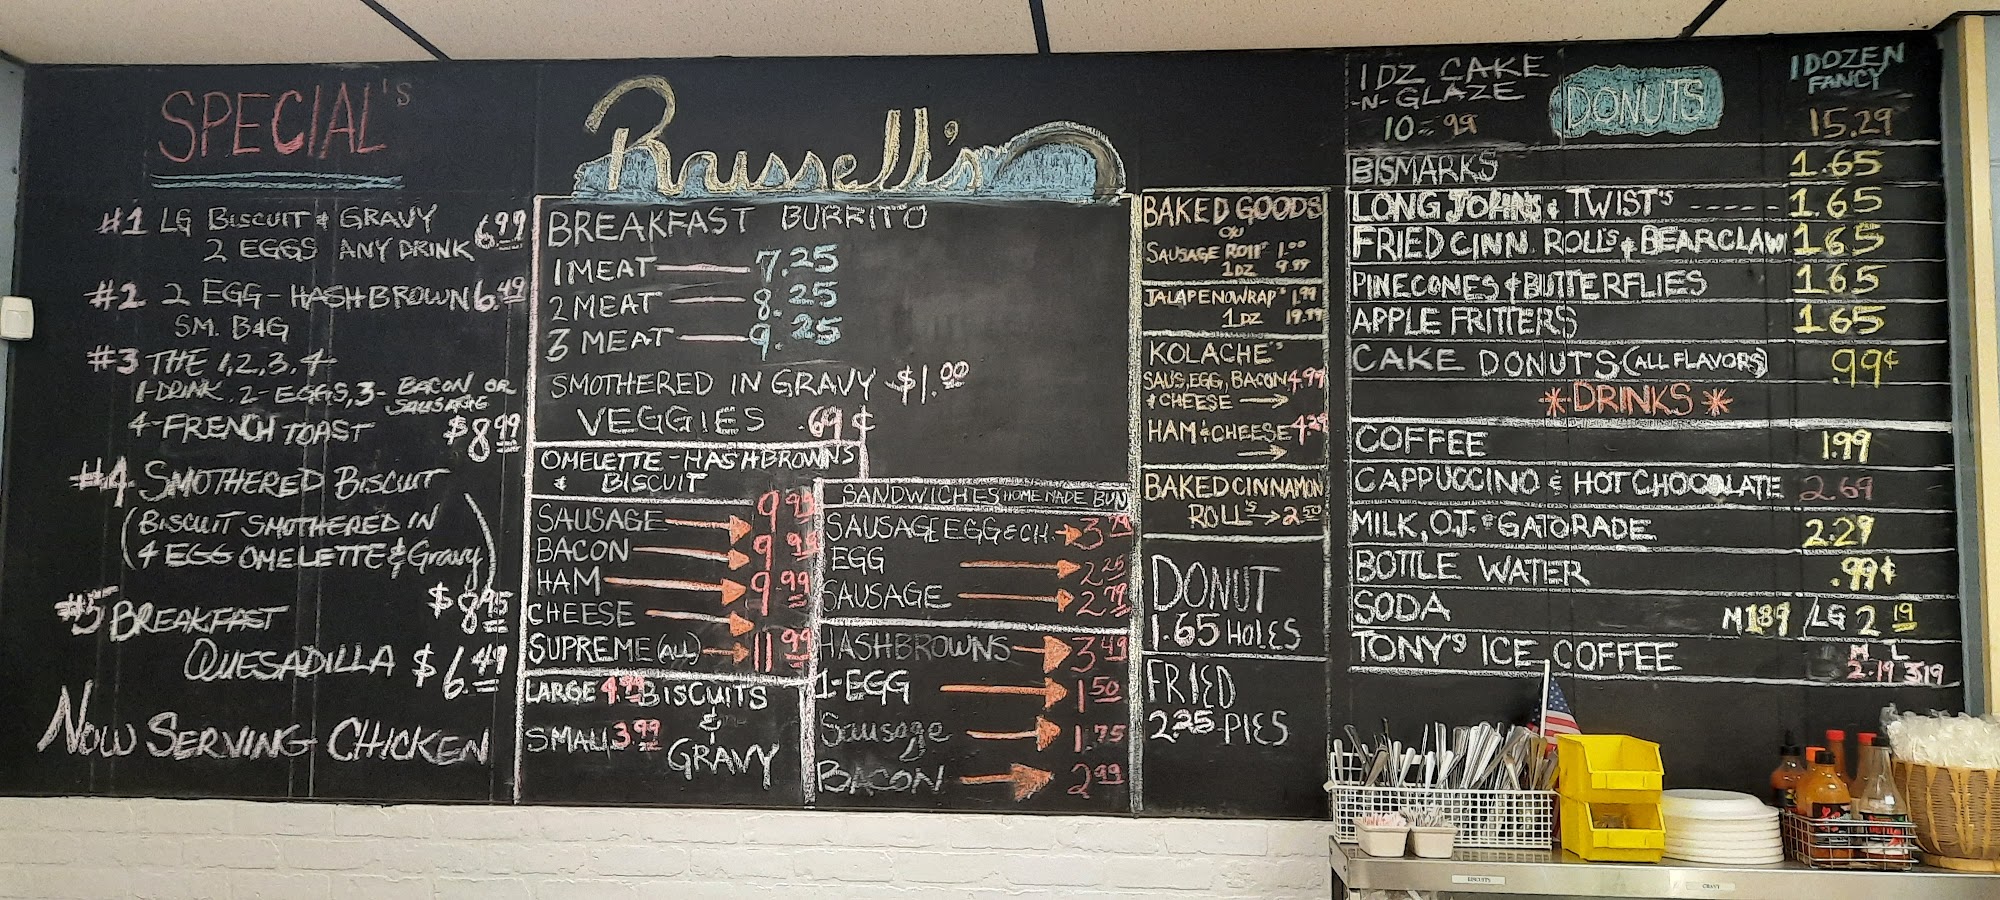 SPECIAL'S
#1 LG BISCUIT & GRAVY
2 EGGS ANY DRINK 6.99
#2 2 EGG-HASHBROWN 6.49
SM. B&G
#3 THE 1,2,3,4
1-DRINK, 2-EGGS, 3-BACON OR
SAUSAGE
4-FRENCH TOAST $8.99
#4 SMOTHERED BISCUIT
(BISCUIT SMOTHERED IN
4 EGG OMELETTE & Gravy)
$8.95
#5 BREAKFAST
QUESADILLA $6.49
NOW SERVING CHICKEN
Russell's
BREAKFAST BURRITO
1 MEAT 7.25
2 MEAT 8.25
3 MEAT 9.25
SMOTHERED IN GRAVY $1.00
VEGGIES .69¢
OMELETTE-HASHBROWNS
& BISCUIT
SAUSAGE 9.99
BACON 9.99
HAM 9.99
CHEESE
SUPREME (ALL) 11.99
LARGE 4.99 BISCUITS
&
SMALL 3.99 GRAVY
SANDWICHES HOME MADE BUN
SAUSAGE EGG & CH. 3.79
EGG 2.25
SAUSAGE 2.79
HASHBROWNS 3.49
1-EGG 1.50
Sausage 1.75
BACON 2.99
BAKED GOODS
SAUSAGE ROLL 1.00
1DZ 9.99
JALAPENOWRAP'S 1.99
1DZ 19.99
KOLACHE'S
SAUS, EGG, BACON 4.99
& CHEESE
HAM & CHEESE 4.29
BAKED CINNAMON
ROLL'S 2.50
DONUT
1.65 HOLES
FRIED
2.25 PIES
1 DZ CAKE
-N- GLAZE
10.99
DONUTS
1 DOZEN
FANCY
15.29
BISMARKS 1.65
LONG JOHNS & TWIST'S ----- 1.65
FRIED CINN. ROLL'S & BEARCLAW 1.65
PINECONES & BUTTERFLIES 1.65
APPLE FRITTERS 1.65
CAKE DONUTS (ALL FLAVORS) .99¢
*DRINKS*
COFFEE 1.99
CAPPUCCINO & HOT CHOCOLATE 2.69
MILK, O.J. & GATORADE 2.29
BOTTLE WATER .99¢
SODA M 1.89 / LG 2.19
TONY'S ICE COFFEE M 2.19 L 3.19
BISCUITS
GRAVY